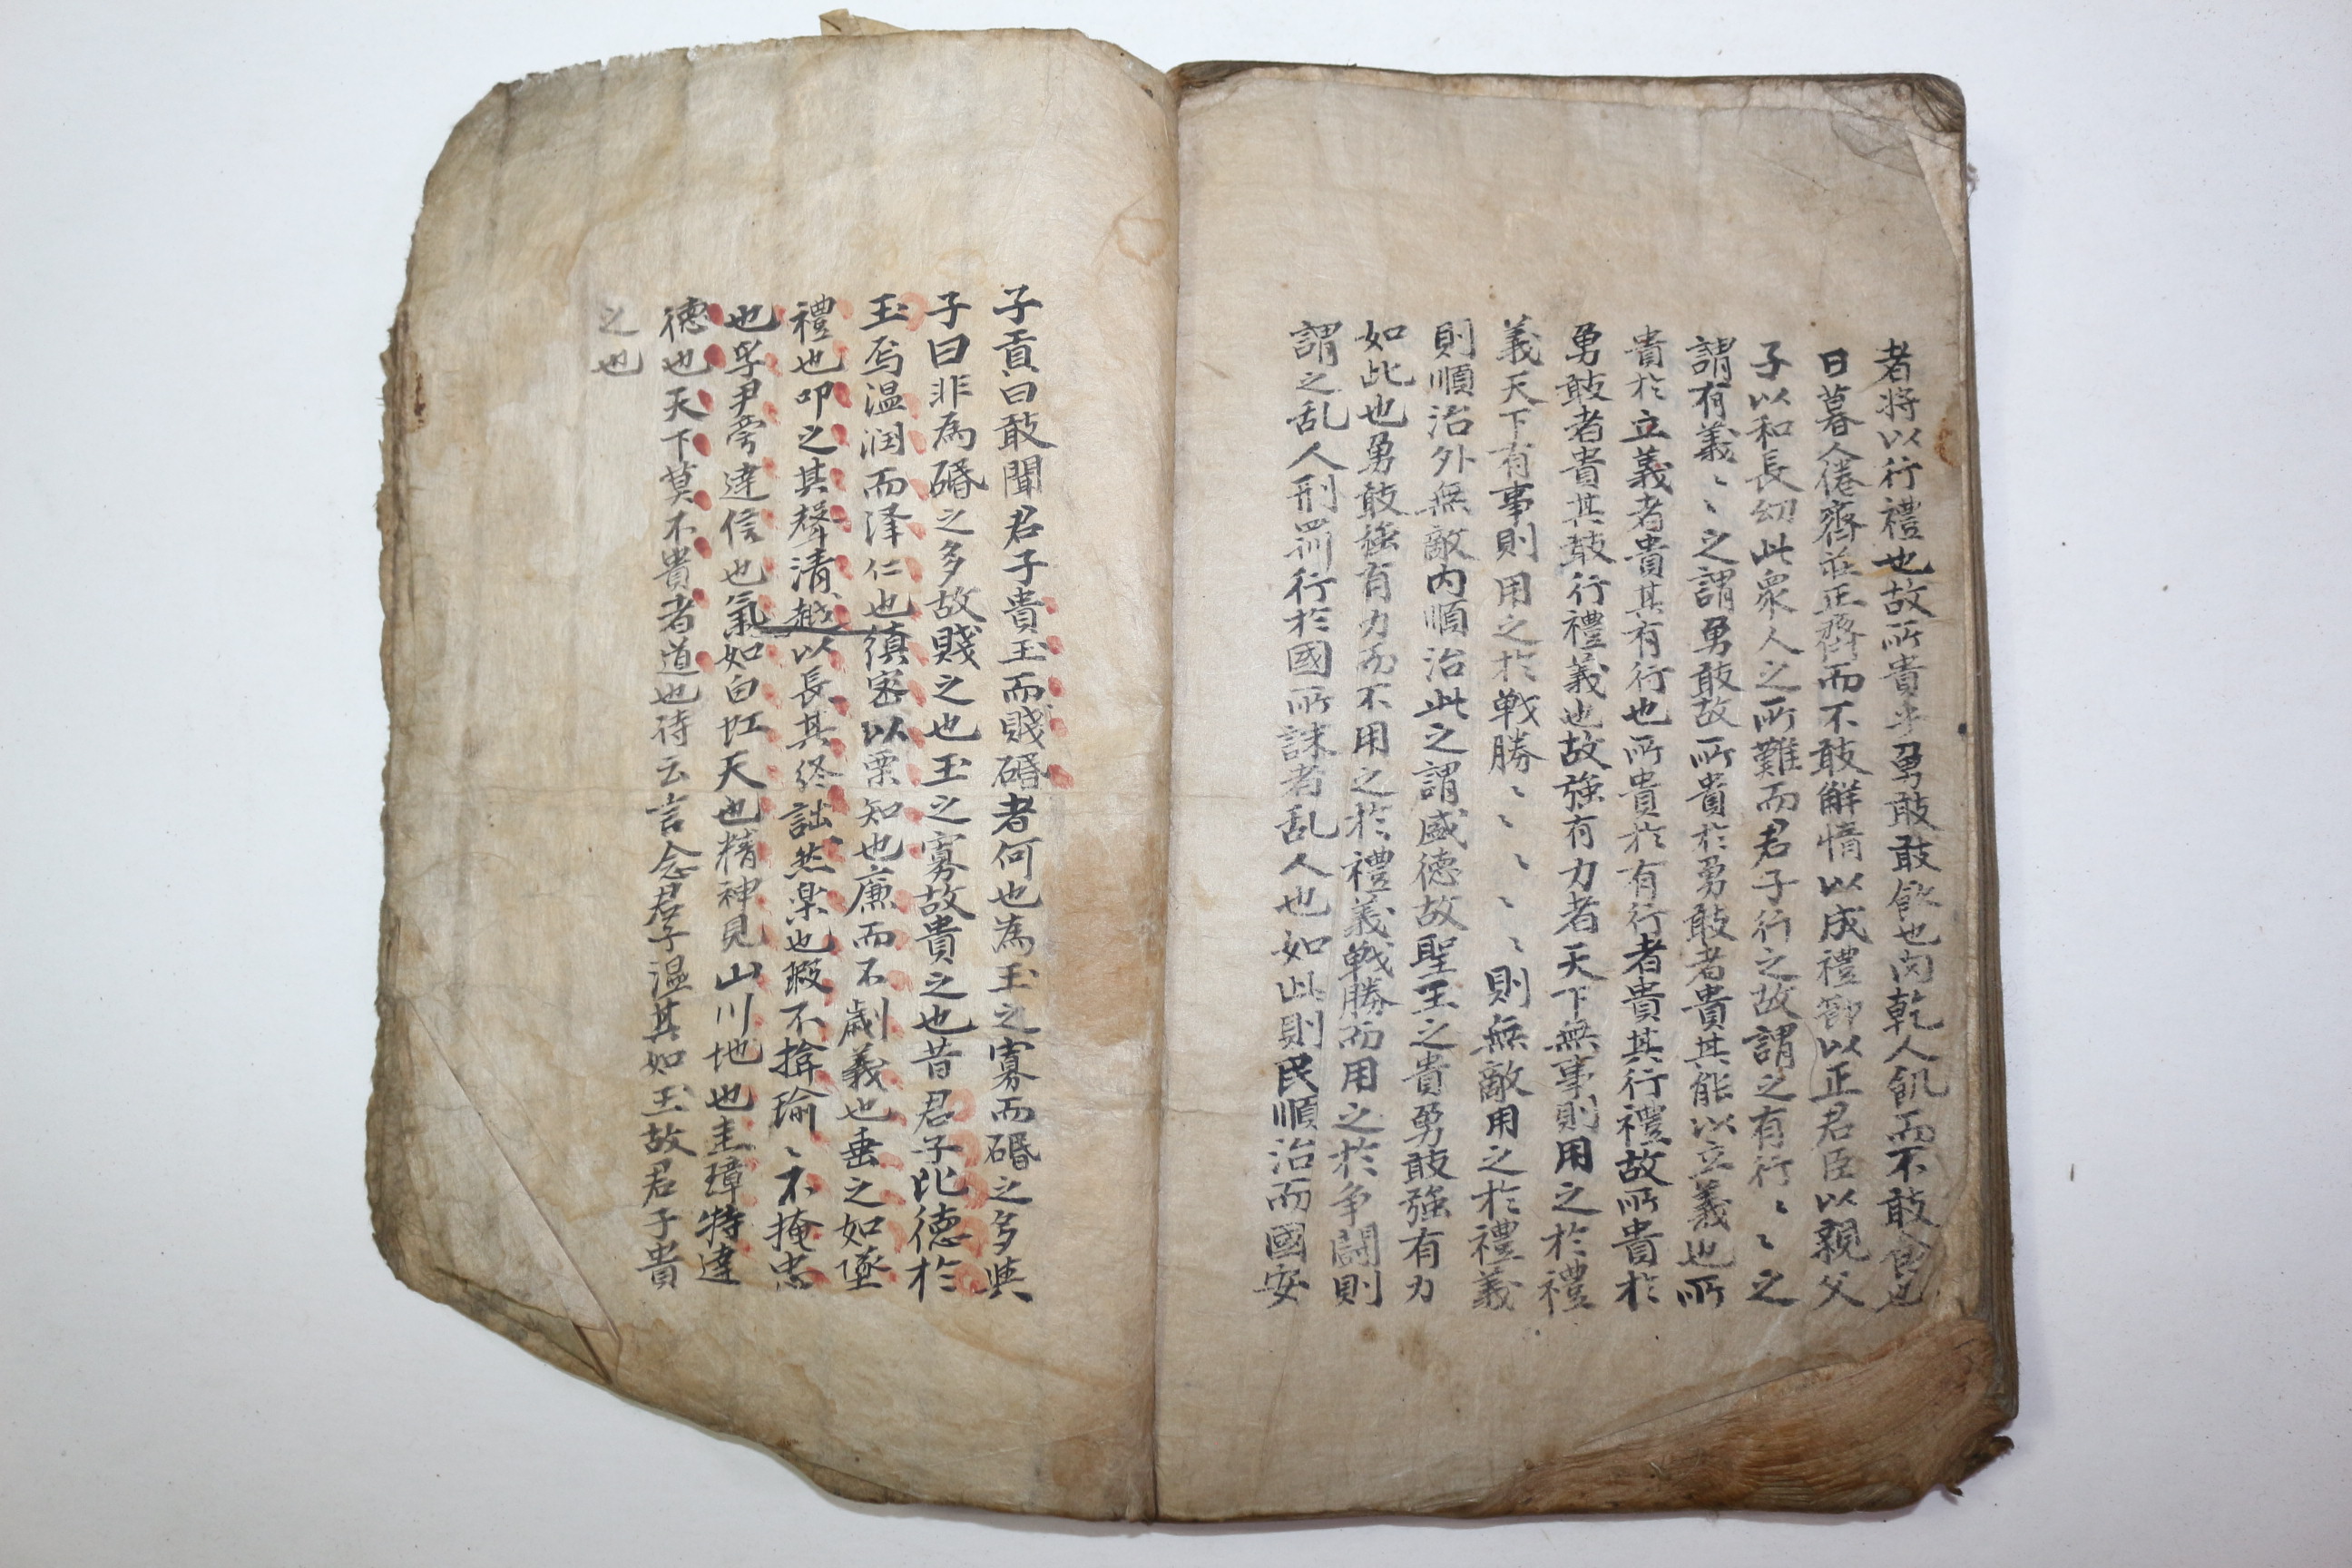 者將以行禮也故所貴乎勇敢敢飲也肉乾人飢而不敢食也
日暮人倦齊莊正齊而不敢觧惰以成禮節以正君臣以親父
子以和長幼此衆人之所難而君子行之故謂之有行〻〻之
謂有義〻〻之謂勇敢故所貴於勇敢者貴其能以立義也所
貴於立義者貴其有行也所貴於有行者貴其行禮故所貴於
勇敢者貴其敢行禮義也故強有力者天下無事則用之於禮
義天下有事則用之於戰勝〻〻〻〻〻則無敵用之於禮義
則順治外無敵內順治此之謂盛德故聖王之貴勇敢強有力
如此也勇敢強有力而不用之於禮義戰勝而用之於争鬪則
謂之乱人刑罰行於國所誅者乱人也如此則民順治而國安
子貢曰敢聞君子貴玉而賤碈者何也為玉之寡而碈之多與
子曰非為碈之多故賤之也玉之寡故貴之也昔君子比德於
玉焉温润而泽仁也縝密以栗知也廉而不劌義也垂之如墜
禮也叩之其聲清越以長其終詘然楽也瑕不揜瑜〻不掩忠
也孚尹旁達信也氣如白虹天也精神見山川地也圭璋特達
德也天下莫不貴者道也待云言念君子温其如玉故君子貴
之也